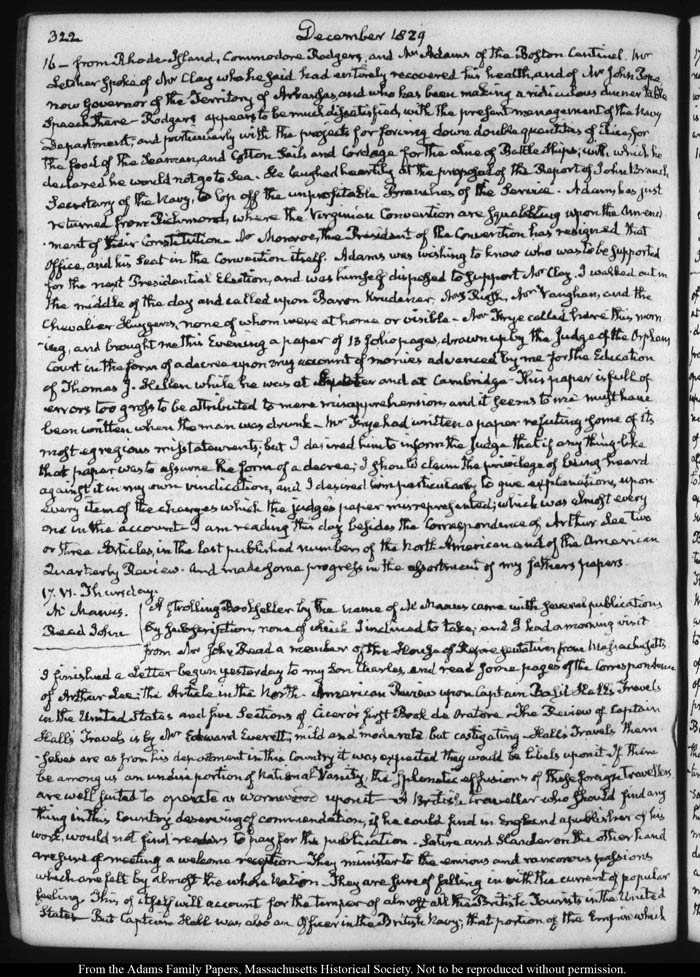 322 December 1829
16 – from Rhode-Island, Commodore Rodgers, and Mr Adams of the Boston Centinel. Mr
Letcher spoke of Mr Clay who he said had entirely recovered his health, and of Mr John Pope
now Governor of the Territory of Arkansas, and who has been making a ridiculous dinner table
Speech there – Rodgers appears to be much dissatisfied, with the present management of the Navy
Department, and particularly with the projects for forcing down double quantities of rice, for
the food of the Seamen, and Cotton Sails and Cordage for the Line of Battle Ships; with which he
declared he would not go to Sea. He laughed heartily at the proposal of the Report of John Branch
Secretary of the Navy, to lop off the unprofitable Branches of the Service. Adams has just
returned from Richmond, where the Virginian Convention are squabbling upon the Amend
ment of their Constitution – Mr Monroe, the President of the Convention has resigned that
Office, and his Seat in the Convention itself. Adams was wishing to know who was to be supported
for the next Presidential Election, and was himself disposed to support Mr Clay. I walked out in
the middle of the day and called upon Baron Krudener, Mr Rush, Mr Vaughan, and the
Chevalier Huygens, none of whom were at home or visible – Mr Frye called here this morn
ing, and brought me this Evening a paper of 13 folio pages, drawn up by the Judge of the Orphans
Court in the form of a decree upon my account of monies advanced by me for the Education
of Thomas J. Hellen while he was at Exeter and at Cambridge – This paper is full of
errors too gross to be attributed to mere misapprehension, and it seems to me must have
been written when the man was drunk – Mr Frye had written a paper refuting some of its
most egregious misstatements; but I desired him to inform the Judge that if any thing like
that paper was to assume the form of a decree, I should claim the privilege of being heard
against it in my own vindication, and I desired him particularly to give explanations, upon
every item of the charges which the judges paper misrepresented; which was almost every
one in the account – I am reading this day besides the Correspondence of Arthur Lee two
or three Articles, in the last published numbers of the North-American and of the American
Quarterly Review. And made some progress in the assortment of my fathers papers.
17. VI. Thursday.
Mc Manus. A strolling Bookseller by the name of Mc Manus came with several publications
Read John by Subscription, none of which I inclined to take; and I had a morning visit
from Mr John Read a member of the House of Representatives from Massachusetts
I finished a Letter begun yesterday to my Son Charles, and read some pages of the Correspondence
of Arthur Lee; the Article in the North-American Review upon Captain Basil Hall's Travels
in the United States and five Sections of Cicero's first Book de Oratore. The Review of Captain
Hall's Travels is by Mr Edward Everett, mild and moderate but castigating – Hall's Travels them
-selves are as from his deportment in this Country it was expected they would be libels upon it. If there
be among us an undue portion of National Vanity, the splenetic effusions of these foreign Travellers
are well suited to operate as wormwood upon it – A British traveller who should find any
thing in this Country deserving of commendation, if he could find in England a publisher of his
work, would not find readers to pay for the publication – Satire and Slander on the other hand
are sure of meeting a welcome reception. They minister to the envious and rancorous passions
which are felt by almost the whole Nation. They are sure of falling in with this current of popular
feeling. This of itself will account for the temper of almost all the British Tourists in the United
States – But Captain Hall was also an Officer in the British Navy; that portion of the Empire which
From the Adams Family Papers, Massachusetts Historical Society. Not to be reproduced without permission.